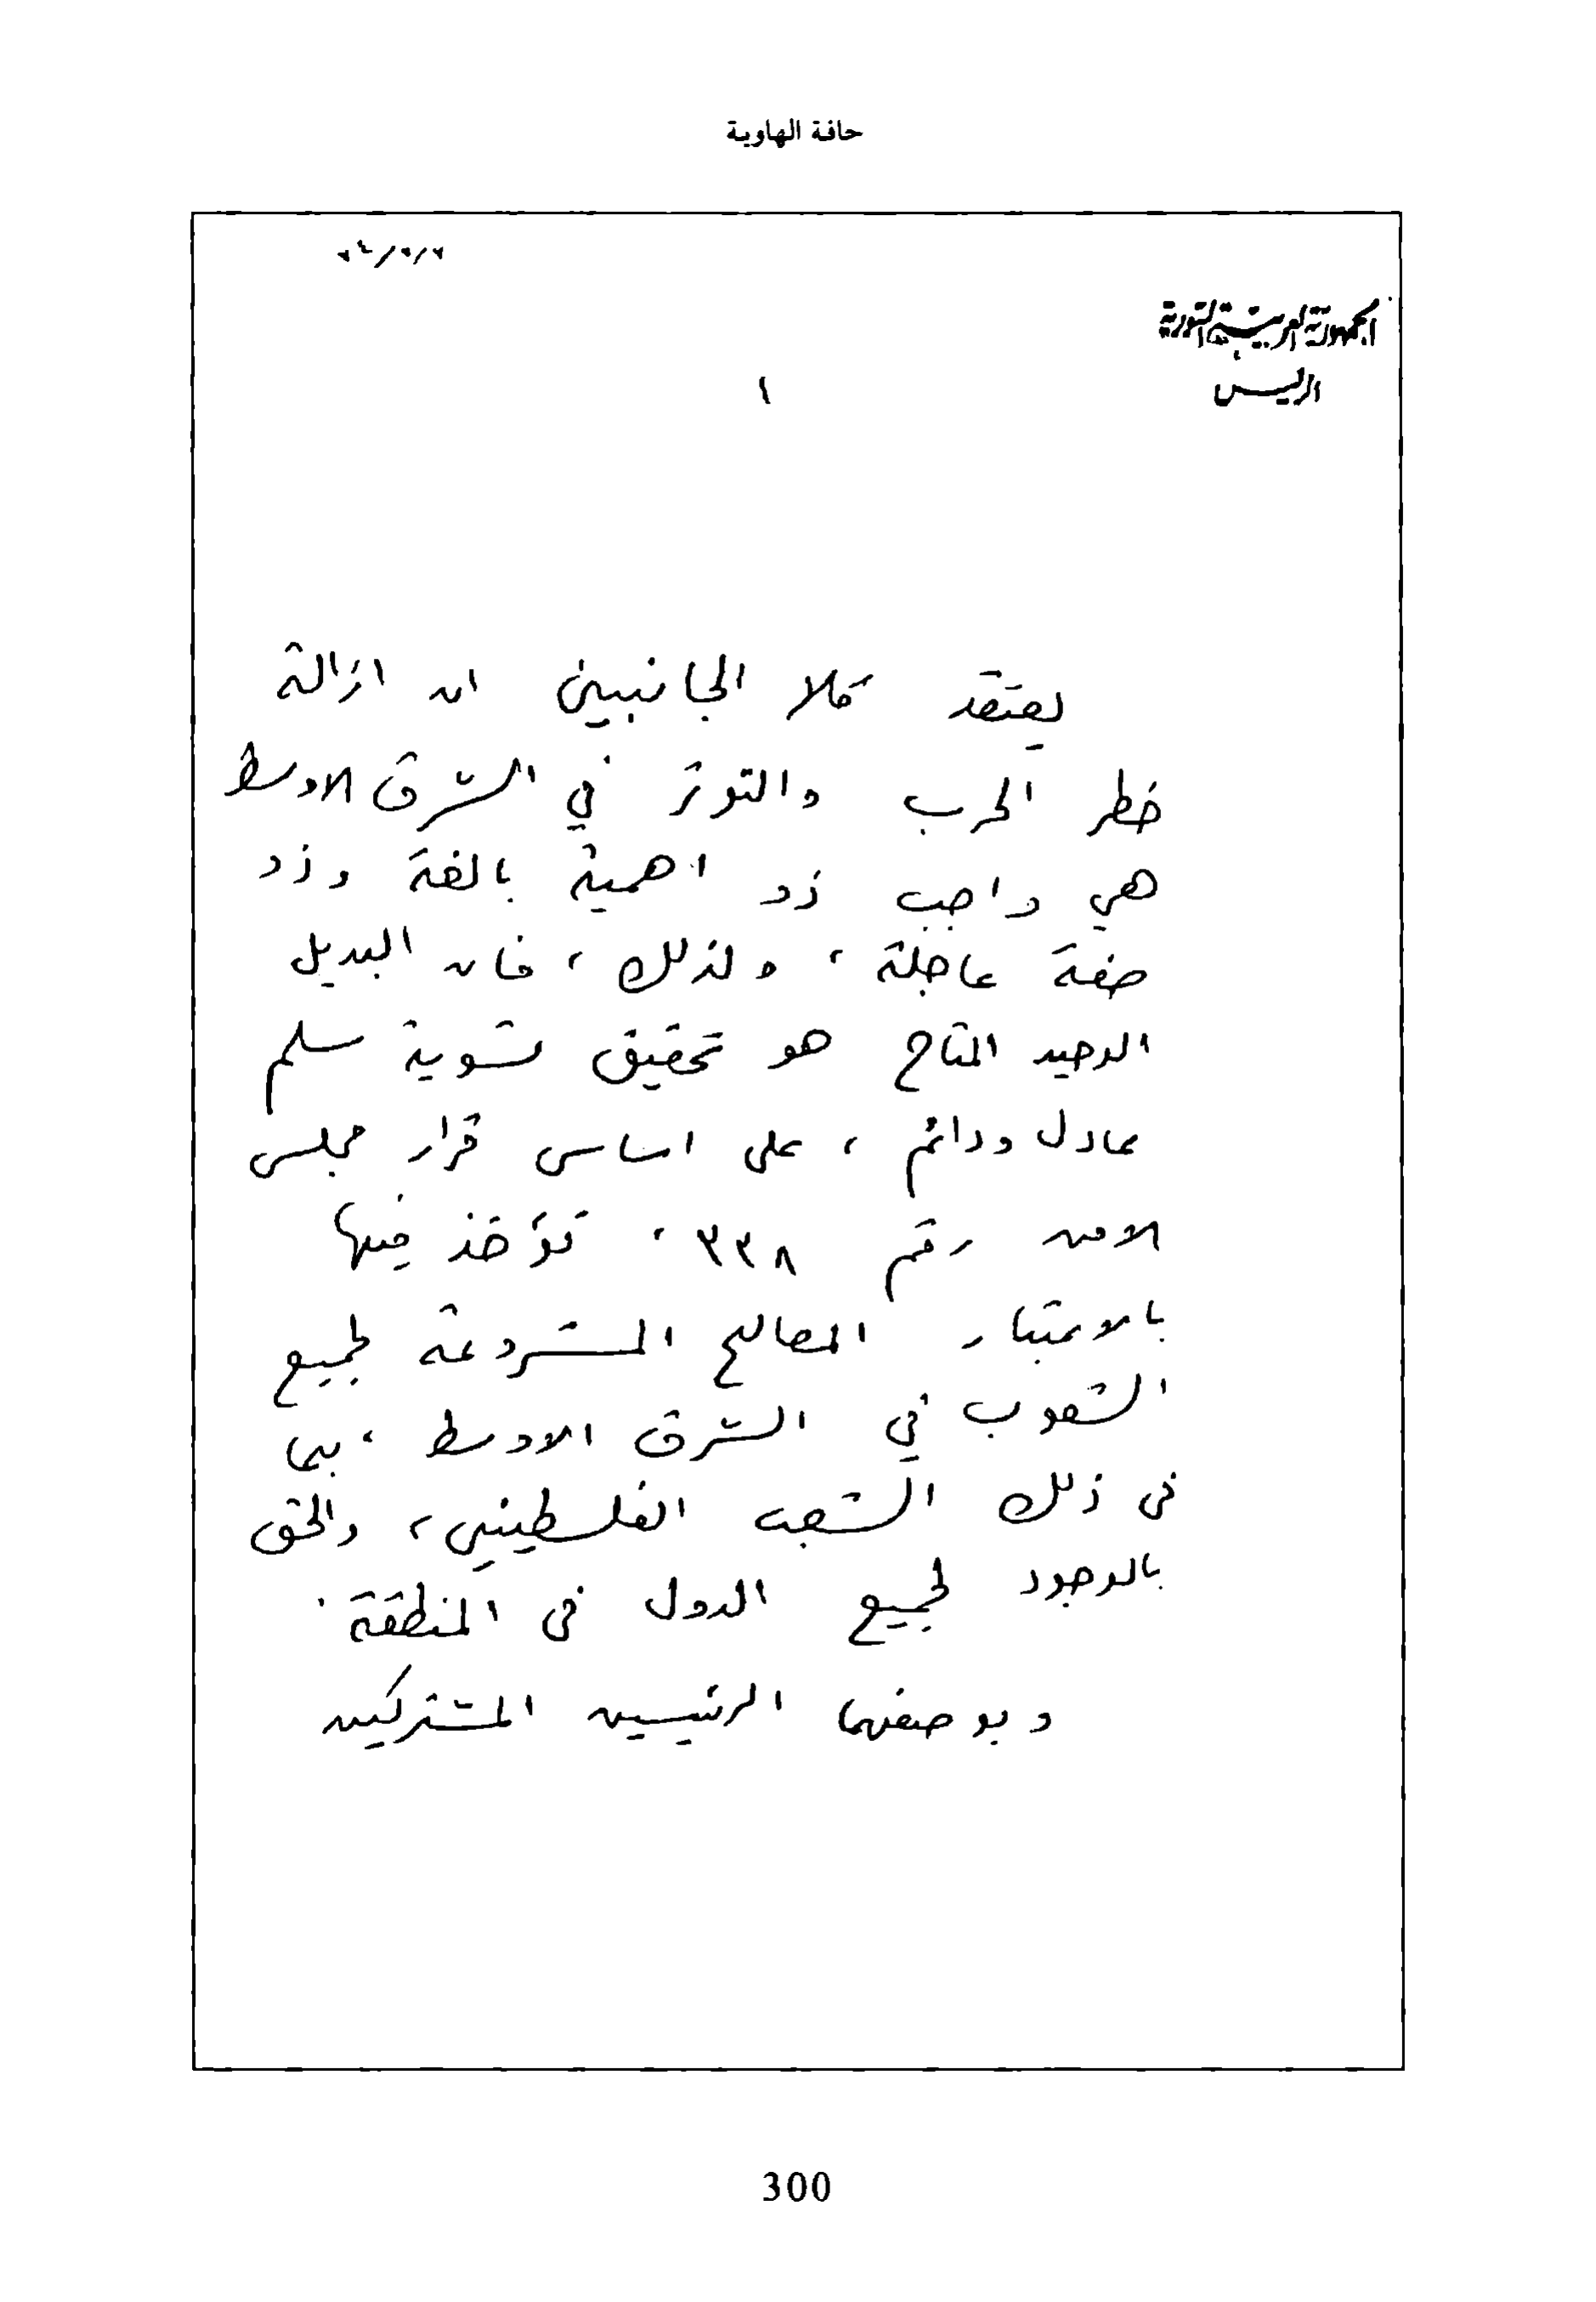 حافة الهاوية
الجمهورية العربية السورية
الرئيس
١
يعتقد كلا الجانبين ان ازالة
خطر الحرب والتوتر في الشرق الاوسط
هي واجب ذو اهمية بالغة وذو
صفة عاجلة ، ولذلك ، فان البديل
الوحيد المتاح هو تحقيق تسوية سلم
عادل ودائم ، على اساس قرار مجلس
الامن رقم ٣٣٨ ، تؤخذ فيها
بالاعتبار المصالح المشروعة لجميع
الشعوب في الشرق الاوسط ، بما
في ذلك الشعب الفلسطيني ، والحق
بالوجود لجميع الدول في المنطقة .
وبوصفهما الرئيسين المشتركين
300